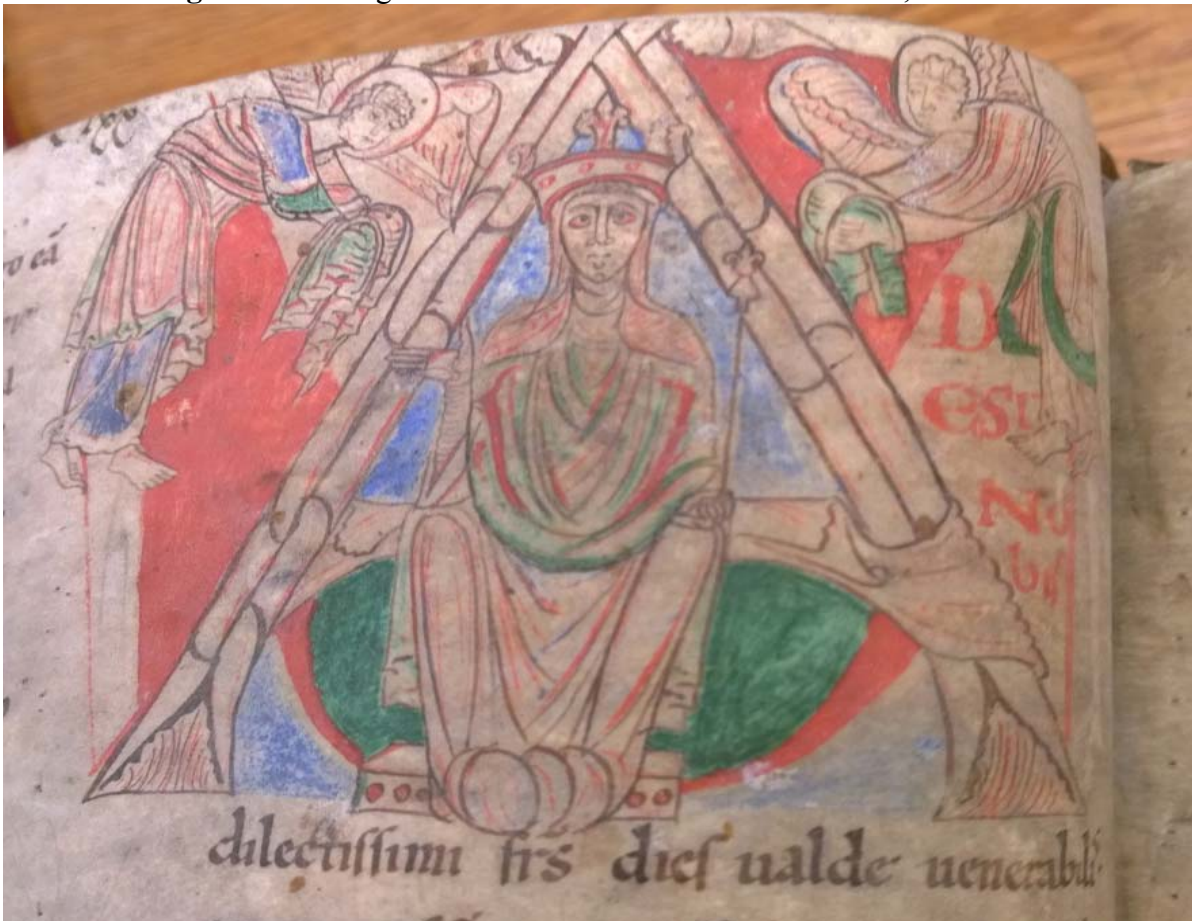 A
D
est
No
bis
dilectissimi frs dies ualde uenerabilis